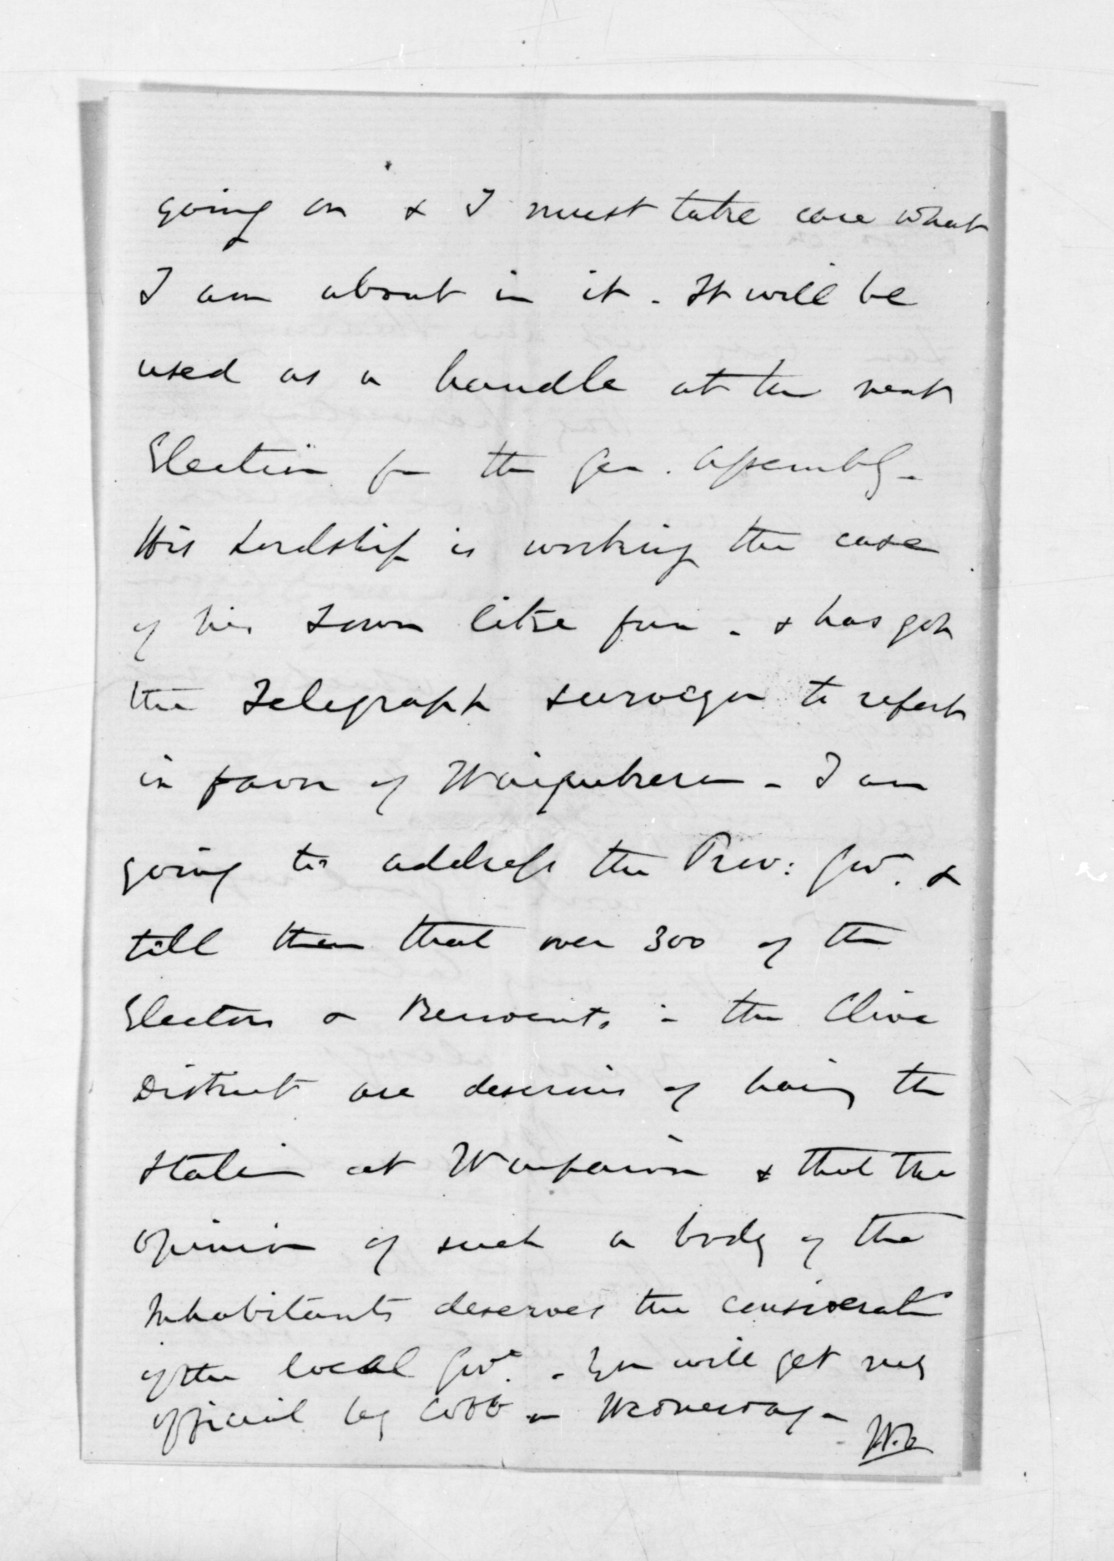 going on & I must take care what
I am about in it. It will be
used as a handle at the next
Election for the Gen. Assembly.
His Lordship is working the case
of his Town like fun. & has got
the Telegraph surveyor to report
in favor of Waipukurau. I am
going to address the Prov: Govt. &
tell them that over 300 of the
Electors & Resident in the Clive
District are desirous of having the
Station at Waipawa & that the
opinion of such a body of the
Inhabitants deserves the considerat
of the local Govt. You will get my
official by Cobb on Wednesday